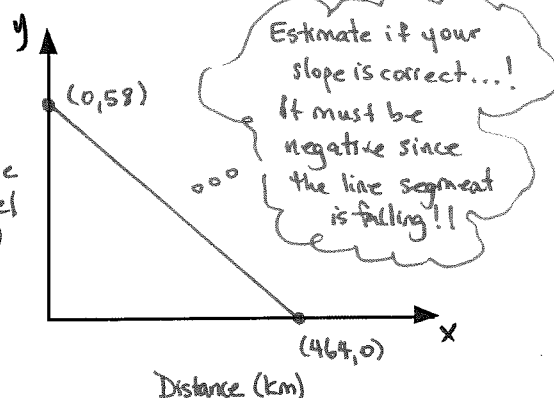 y
(0,58)
e
el
)
Estimate if your
slope is correct...!
It must be
negative since
the line segment
is falling!!
x
(464,0)
Distance (km)